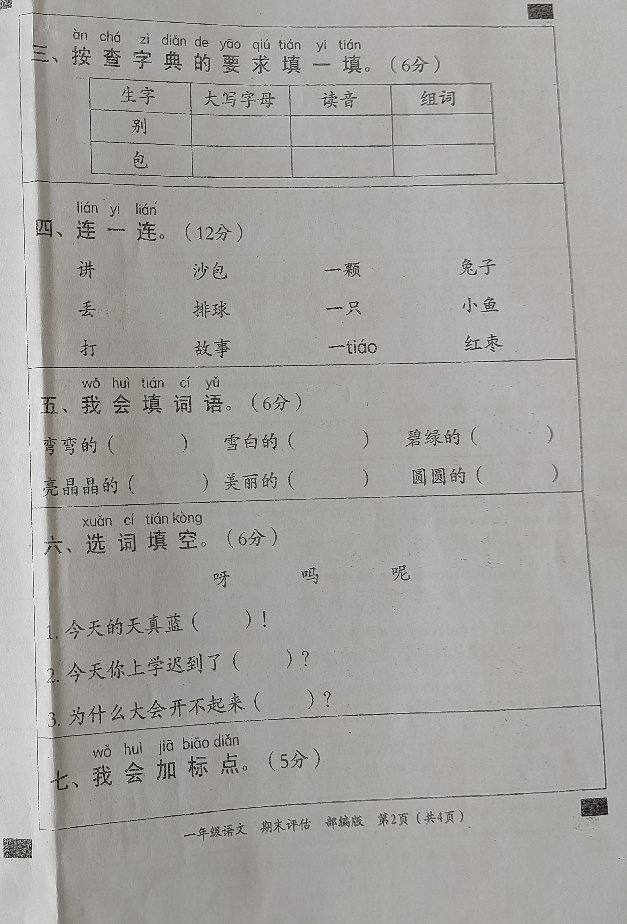 àn chá zì diǎn de yāo qiú tián yi tián
三、按查字典的要求填一填。（6分）
生字 大写字母 读音 组词
别
包
lián yi lián
四、连一连。（12分）
讲 沙包 一颗 兔子
丢 排球 一只 小鱼
打 故事 一tiáo 红枣
wǒ huì tián cí yǔ
五、我会填词语。（6分）
弯弯的（ ） 雪白的（ ） 碧绿的（ ）
亮晶晶的（ ） 美丽的（ ） 圆圆的（ ）
xuǎn cí tián kòng
六、选词填空。（6分）
呀 吗 呢
1. 今天的天真蓝（ ）！
2. 今天你上学迟到了（ ）？
3. 为什么大会开不起来（ ）？
wǒ huì jiā biāo diǎn
七、我会加标点。（5分）
一年级语文 期末评估 部编版 第2页（共4页）